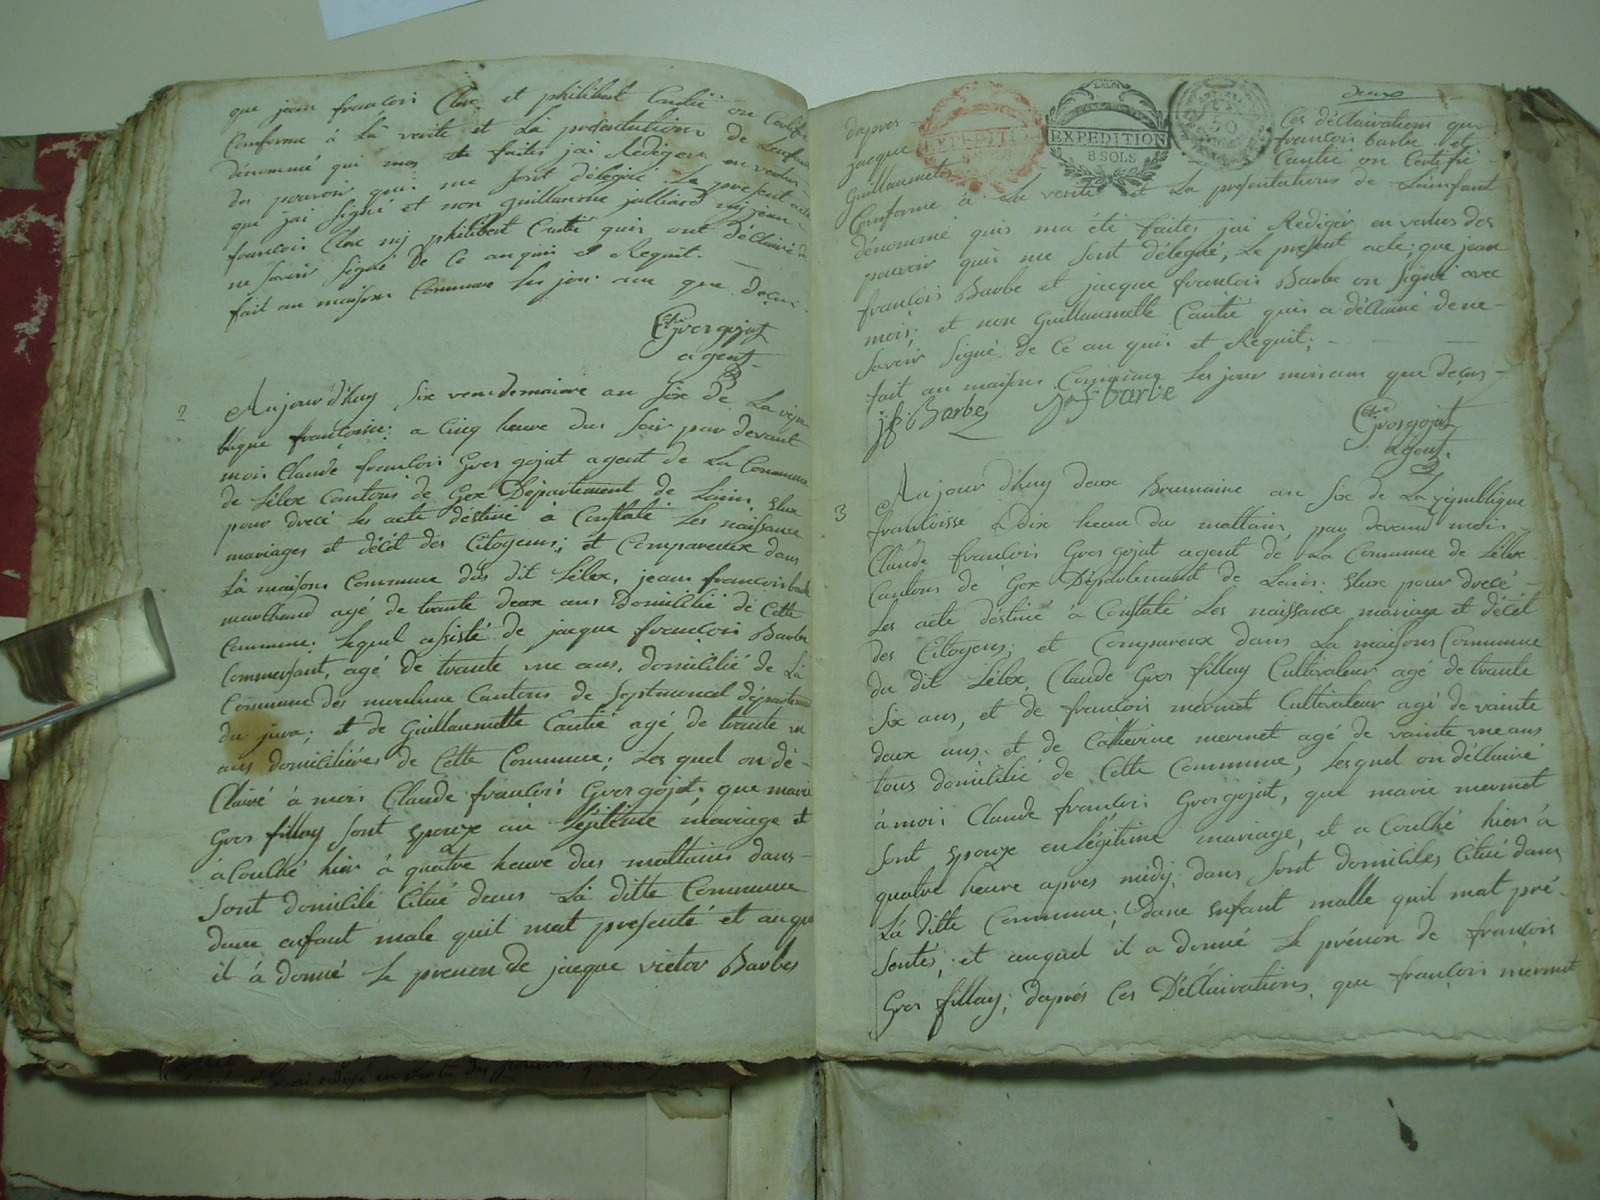 que jean francois Clerc et philibert Cautié on Certifié
Conforme à la verite et la présentations de Lenfant
dénommé qui mon été faites jai Rédigers en vertus
des pouvoir quis me sont délegué Le present acte
que jai signé et non guillaume julliard nij jean
francois Clerc nij philibert Cautié quis ont déClairé de
ne savoir signé de Ce anquis et Requit.
fait au maisons Commune les jour an que desus
Grosgojat
agent
2
Aujourd'huy six vendemaire an six de La répu
blique francoisse; a Cinq heure dus soir par devant
mois Claude francois Gros gojat agent de La Commune
de Lélex Cantons de Gex Département de Lains, Elux
pour drecé les acte déstiné à Constaté Les naissance
mariages et décét des Citoyens; et Compareux dans
La maisons Commune dus dit Lélex, jean francois barbe
marchand agé de trante deux ans domicilié de Cette
Commune; lequel assisté de jacque francois Barbe
Commersant, agé de trante une ans, domicilié de La
Commune des Cantons de Septmoncel départemen
du jura; et de Guillaumette Cautié agé de trante un
ans domiciliées de Cette Commune; Les quel on dé-
Clairé à mois Claude francois Grosgojat; que marie
Gros fillay sont epouze au Légitime mariage et
àCouché hier à quatre heure dus mattains dans-
sont domicile Citué dans La ditte Commune
dune enfant male quil mat presenté et auquel
il à donné le prenon de jacque victor Barbes
deux
EXPEDITION
8 SOLS
EXPEDITION
8 SOLS
dapres Ces déClairations que
jacque francois Barbe et
Guillaumette Cautié on Certifié
Conforme à la verité et La présentations de Lainfant
dénommé quis ma été faites jai Rédiger en vertus des
pouvoir quis me sont délegué, Le présent acte; que jean
francois Barbe et jacque francois Barbe on signé avec
mois; et non Guillaumette Cautié quis a déClairé de ne-
savoir signé de Ce an quis et Requit;
fait au maisons Commune les jour mois ans que desus-
jf Barbe J f barbe
Grosgojat
agent.
3
Aujour d'huy deux Brumaire an six de La république
francoisse à dix heure du mattains par devant mois
Claude francois Gros gojat agent de La Commune de Lélex
Cantons de Gex Département de Lains; Elux pour drecé-
Les acte déstiné à Constaté Les naissance mariage et décét
des Citoyens; et Compareux dans La maisons Commune
du dit Lélex Claude Gros fillay Cultivateur agé de trante
six ans, et de francois mermet Cultivateur agé de vainte
deux ans. et de Catherine mermet agé de vainte une ans
tous domicilié de Cette Commune, Lesquel on déClairé
à mois Claude francois Grosgojat, que marie mermet
sont epouze en Légitime mariage, et a Couché hier à
quatre heure apres midy; dans sont domiciles Citué dans
La ditte Commune; dune enfant malle quil mat pré-
sentés, et auquel il a donné le prénon de francois
Gros fillay; daprés Ces DéClairations, que francois mermet